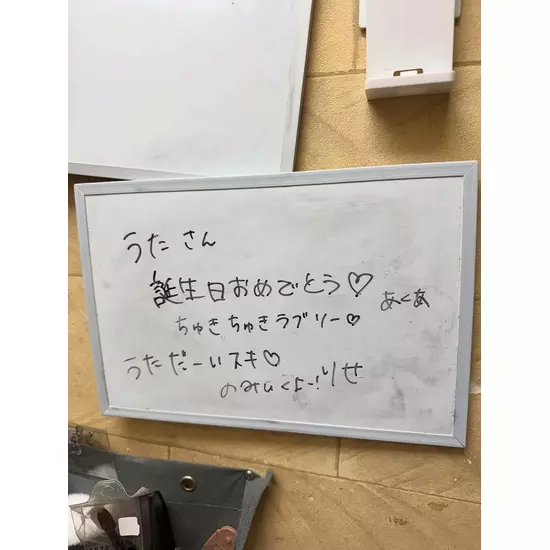 うた さん
誕生日おめでとう♡
あくあ
ちゅきちゅきラブリー♡
うただーいスキ♡
のみいくよー!りせ